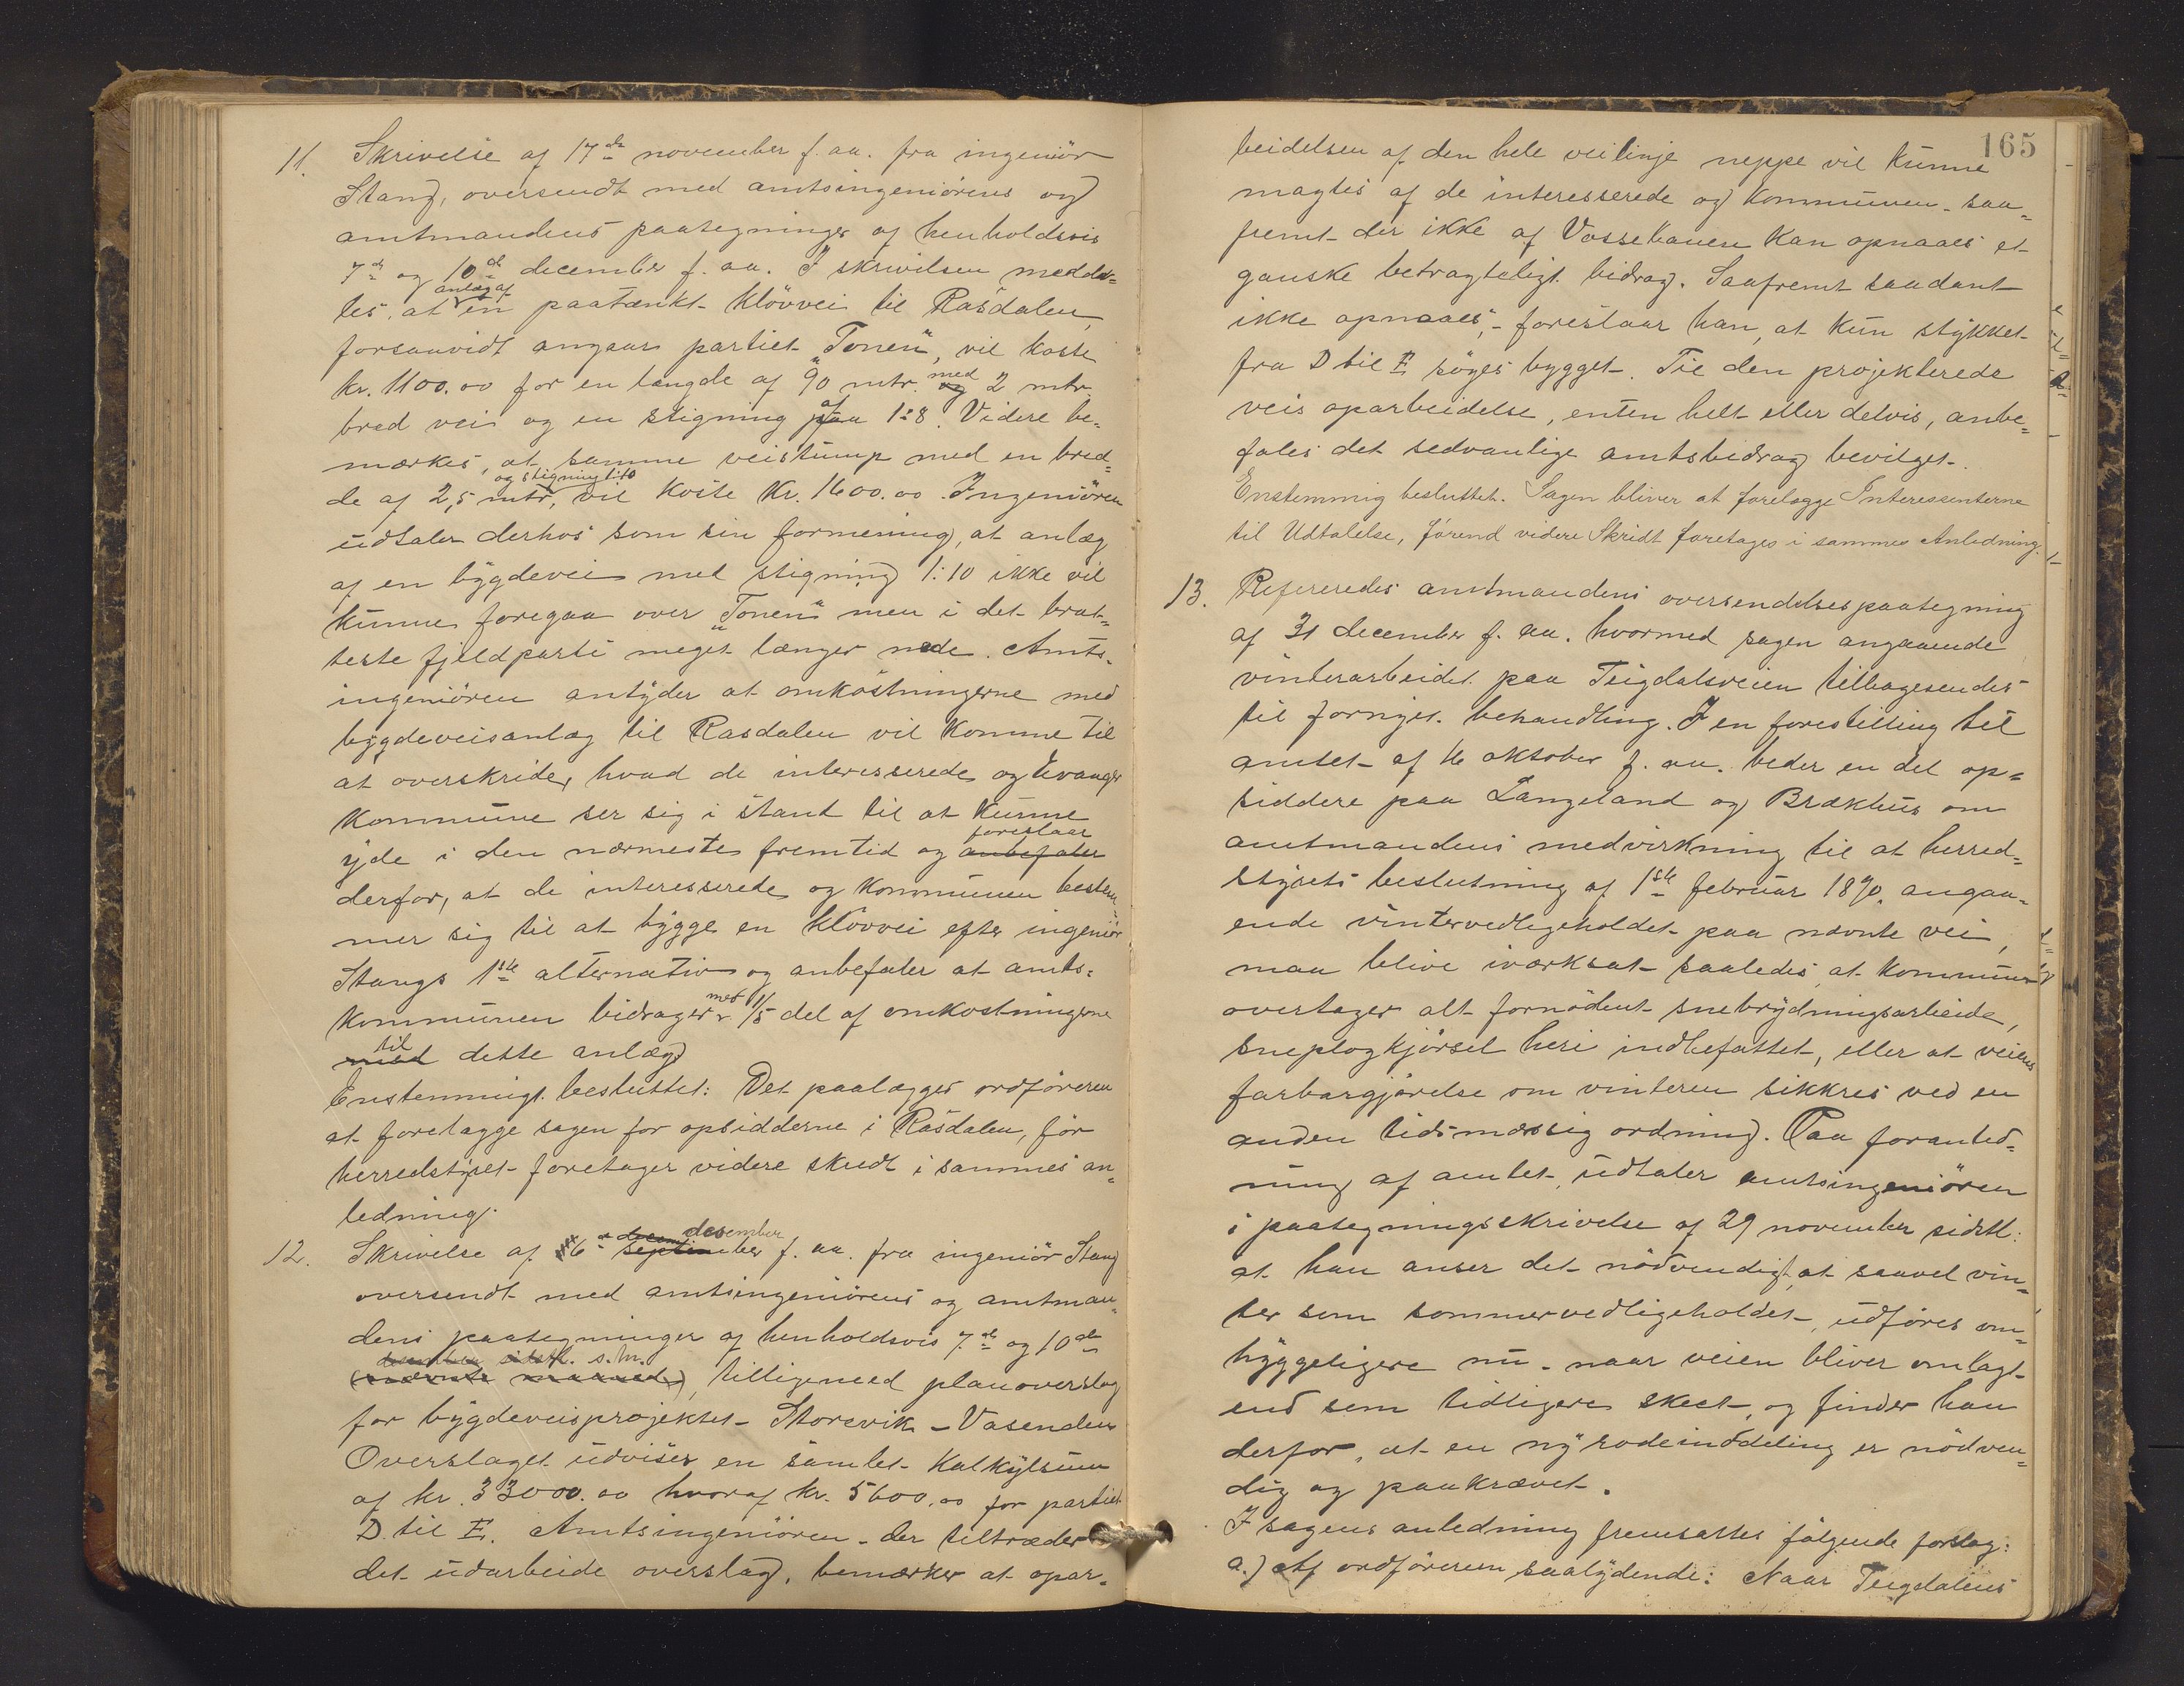 11. Skrivelse af 17de november f. aa. fra ingeniör
Stang, oversendt med amtsingeniörens og
amtmandens paategninger af henholdsvis
7de og 10de december f. aa. I skrivelsen medde-
les, at anlæg af en paatænkt kløvvei til Rasdalen,
forsaavidt angaar partiet „Tonen“, vil koste
kr. 1100.00 for en længde af 90 mtr. og med 2 mtr.
bred vei og en stigning paa af 1:8. Videre be-
mærkes, at samme veistump med en bred-
de af 2,5 mtr. og stigning 1:10, vil koste Kr. 1600.00. Ingeniören
udtaler derhos som sin formening, at anlæg
af en bygdevei med stigning 1:10 ikke vil
kunne foregaa over „Tonen“ men i det brat-
teste fjeldparti meget længer nede. Amts-
ingeniören antyder at omkostningerne med
bygdeveisanlæg til Rasdalen vil komme til
at overskride, hvad de interesserede og Evanger
kommune ser sig i stand til at kunne
yde i den nærmeste fremtid og anbefaler foreslaar
derfor, at de interesserede og kommunen bestem
mer sig til at bygge en kløvvei efter ingeniör
Stangs 1ste alternativ og anbefaler at amts-
kommunen bidrager med 1/5 del af omkostningerne
med til dette anlæg.
Enstemmigt besluttet: Det paalægges ordföreren
at forelægge sagen for opsidderne i Rasdalen, för
herredstyret foretager videre skridt i sammes an-
ledning.
12. Skrivelse af 6te september december f. aa. fra ingeniör Stang
oversendt med amtsingeniörens og amtman-
dens paategninger af henholdsvis 7de og 10de
s. m. (nævnte maaned), tilligemed planoverslag
for bygdeveisprojektet Storevik – Vasenden
Overslaget udviser en samlet kalkylsum
af kr. 33000.00 hvoraf kr. 5600.00 for partiet
D til E. Amtsingeniören – der tiltræder
det udarbeide overslag, bemærker at opar-
165
beidelsen af den hele veilinje neppe vil kunne
magtes af de interesserede og kommunen – saa-
fremt der ikke af Vossebanen kan opnaaes et
ganske betragteligt bidrag. Saafremt saadant
ikke opnaaes, – foreslaar han, at kun stykket
fra D til E söges bygget. Til den projekterede
veis oparbeidelse, enten helt eller delvis, anbe-
fales det sedvanlige amtsbidrag bevilget.
Enstemmig besluttet. Sagen bliver at forelægge Interessenterne
til Udtalelse, førend videre Skridt foretages i sammes Anledning.
13. Refereredes amtmandens oversendelsespaategning
af 31 december f. aa. hvormed sagen angaaende
vinterarbeidet paa Teigdalsveien tilbagesendes
til fornyet behandling. I en forestilling til
amtet af 16 oktober f. aa. beder en del op-
siddere paa Langeland og Brækhus om
amtmandens medvirkning til at herred-
styrets beslutning af 1ste februar 1890 angaa-
ende vintervedligeholdet paa nævnte vei,
maa blive iværksat saaledes, at kommunen
overtager alt fornödent snebrydningsarbeide,
sneplogkjörsel heri indbefattet, eller at veiens
farbargjörelse om vinteren sikkres ved en
anden tidsmæssig ordning. Paa foranled-
ning af amtet, udtaler amtsingeniören
i paategningsskrivelse af 29 november sidstl:
at han anser det nödvendigt, at saavel vin-
ter som sommervedligeholdet, udföres om-
hyggeligere nu – naar veien bliver omlagt
end som tidligere skeet, og finder han
derfor, at en ny rodeinddeling er nödven-
dig og paakrævet.
I sagens anledning fremsattes fölgende forslag:
a.) Af ordföreren saalydende: Naar Teigdalens